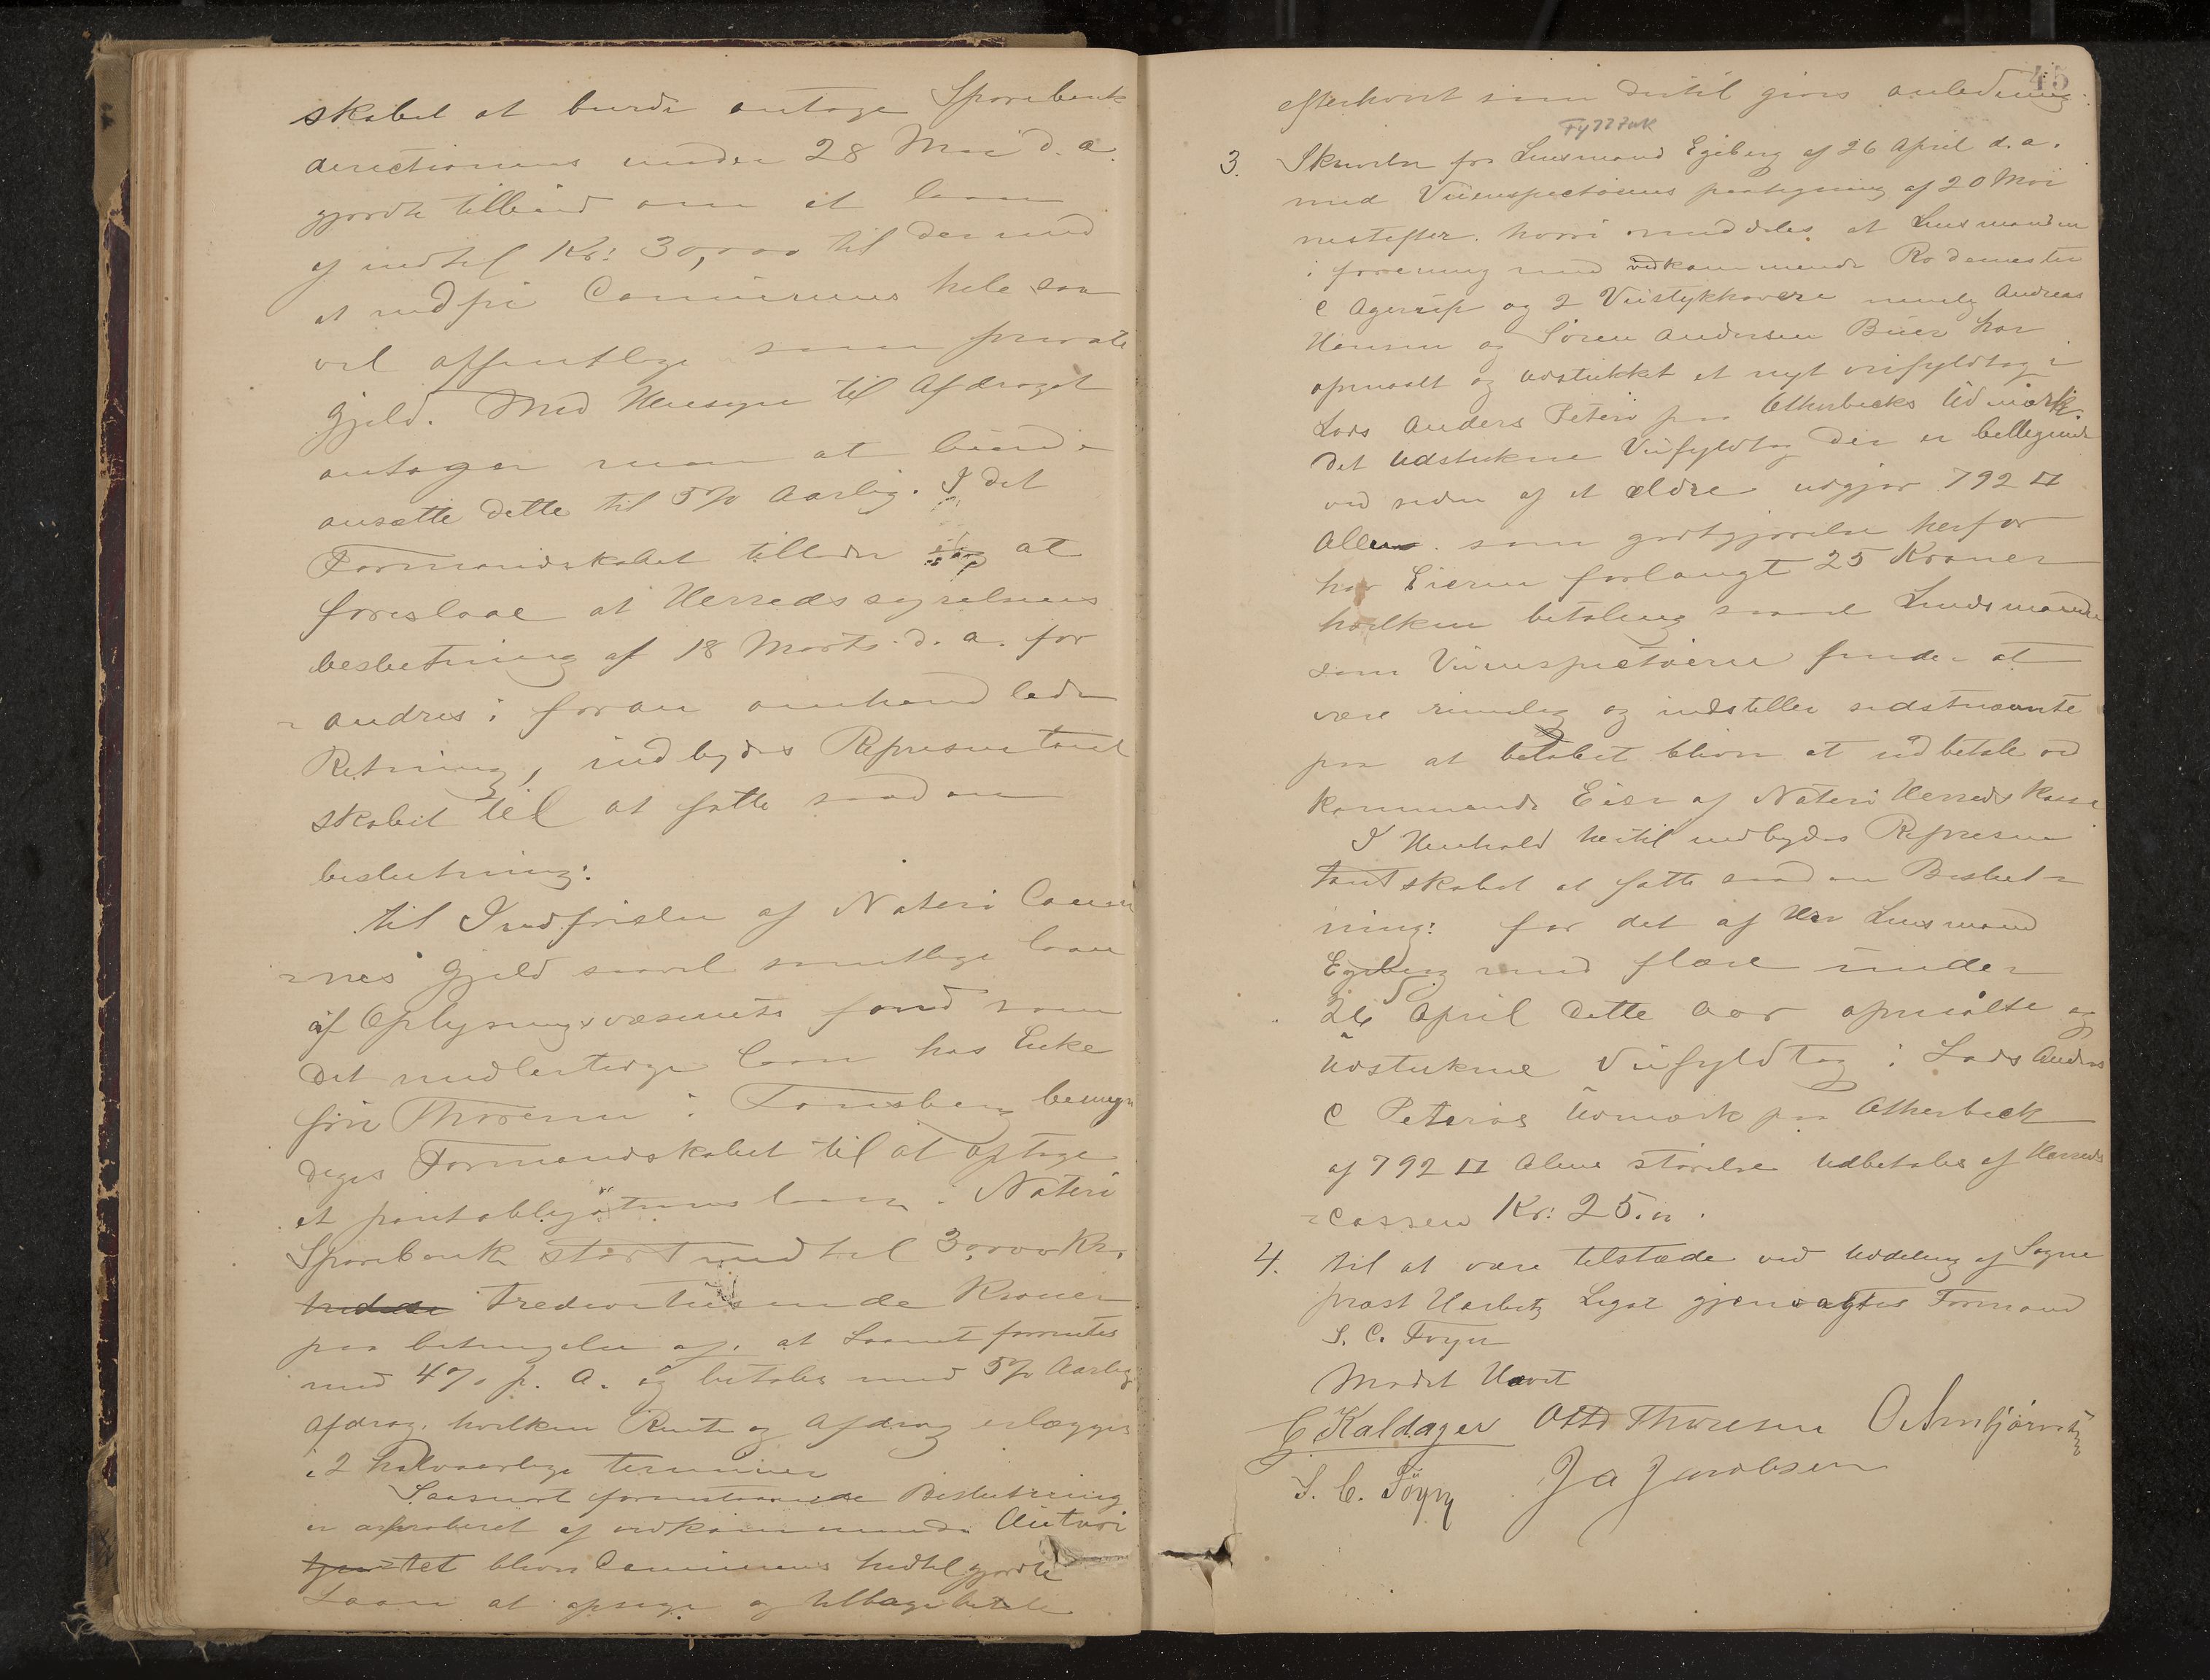 skabet at burde antage Sparebank
directionens under 28 Mai d. a.
gjorde tilbud om et laan
af indtil Kr: 30,000 til dermed
at indfri Communens hele saa
vel offentlige som private
Gjeld. Med Hensyn til Afdraget
antager man at burde
ansætte dette til 5% Aarlig. I det
Formandskabet tillader sig at
foreslaae at Herredsstyrelsens
beslutning af 18 Marts d. a. for
=andres i foran omhandlede
Retning, indbydes Repræsentant
skabet til at fatte saadan
beslutning:
til Indfrielse af Nøterø Commu
=nes Gjeld saavel samtlige laan
af Oplysningsvæsenets fond som
det midlertidige laan hos Enke
fru Thoresen i Tønsberg bemyn
diges Formandskabet til at optage
et pantobligationslaan i Nøterø
Sparebank stort indtil 30,000 Kr.
tredivetusinde Kroner
paa betingelse af, at Laanet forrentes
med 4% p. A. og betales med 5% Aarlig
Afdrag, hvilken Rente og Afdrag erlægges
i 2 halvaarlige terminer
Saasnart foranstaaende Beslutning
er approberet af vedkommende Autori
tet blive Communens hidtil gjorde
Laan at opsige og tilbagebetale
45
efterhvert som dertil gives anledning.
3. Skrivelse fra Lensmand Egeberg af 26 April d. a.
med Veiinspectørens paategning af 20 Mai
nestefter. hvori meddeles at Lensmanden
i forening med vedkommende Rodemester
C Agerup og 2 Veistykhavere nemlig Andreas
Hansen og Søren Andersen Buer har
opmaalt og Udstukket et nyt veifyldtag i
Lars Anders Peters paa Ótherbecks Udmark.
Det Udstukne Veifyldtag der er beliggende
ved siden af et ældre udgjør 792 □
Allen. som godtgjørelse herfor
har Eieren forlangt 25 Kroner
hvilken betaling saavel Lensmanden
som Veiinspectøren finder at
være rimelig og indstiller sidstnævnte
paa at beløbet bliver at udbetale ved
kommende Eier af Nøterø Herredskasse
I Henhold hertil indbydes Repræsen
tantskabet at fatte saadan Beslut=
ning: for det af Hr Lensmand
Egeberg med flere under
26 April dette Aar opmålte og
Udstukne Veifyldtag i Lars Anders
C Peterøs Udmark paa Otherbeck
af 792 □ Alens størrelse Udbetales af Herreds
=cassen Kr: 25.00.
4. til at være tilstæde ved Uddeling af Sogne
præst Legat gjenvalgtes Formand
S. C. Føyn
Mødet Hævet
C. Kaldager Otto Thoresen O Arnbjørnsen
S. C. Föyn Ja Jacobsen